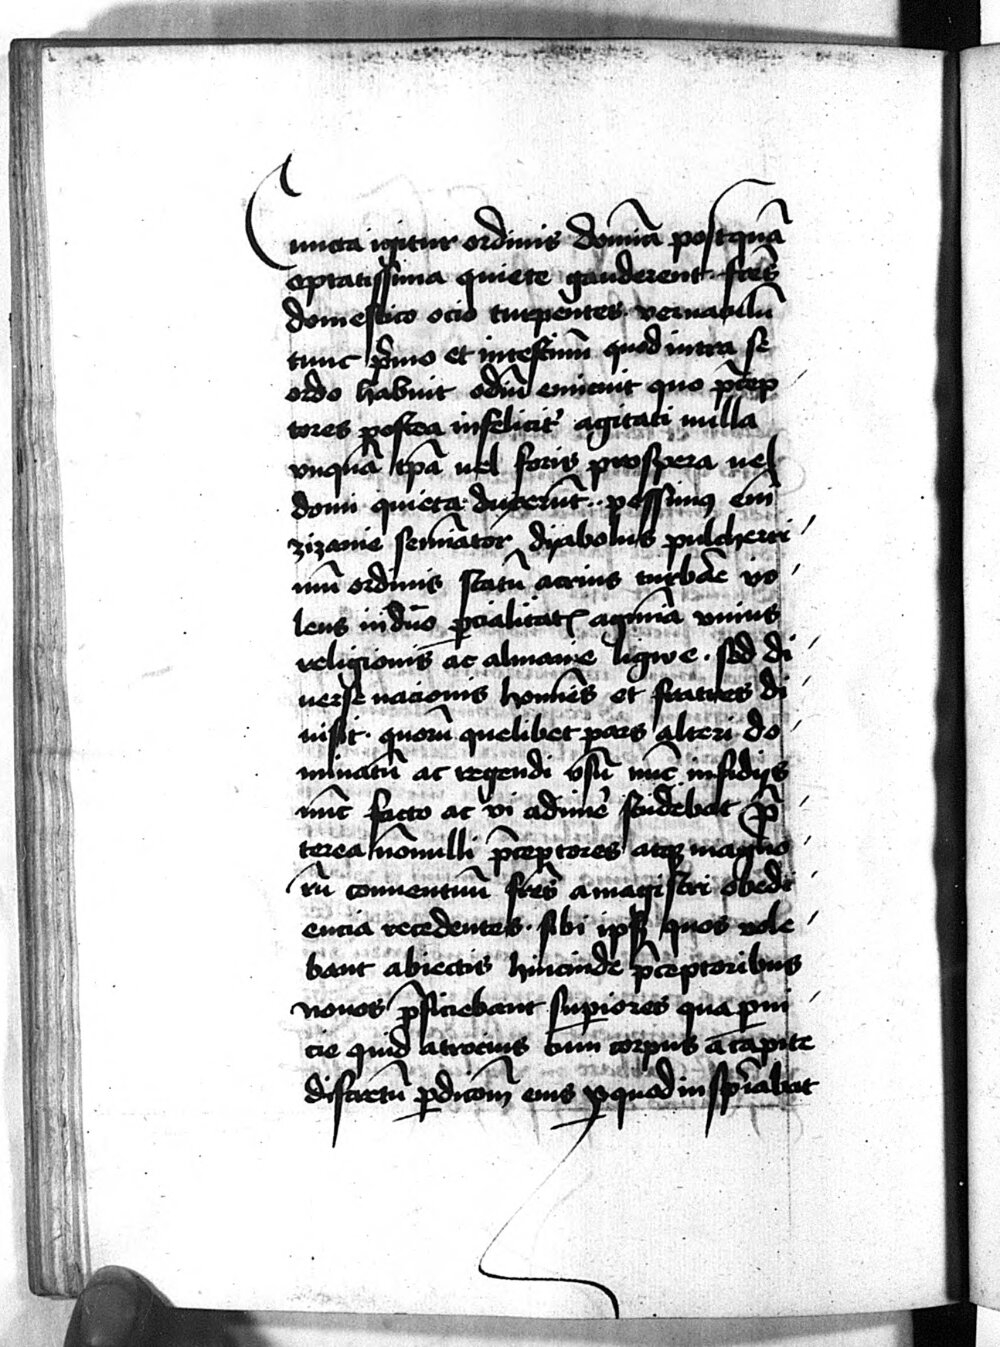 Cuncta igitur ordinis domīa postquā
optatissima quiete gauderent fr̄es
domestico ocio turpentes vernabilū
tunc p̄mo et intestinū quod intra se
ordo habuit odiū emicuit quo p̄cep
tores postea infeliciť agitati nulla
vnquā tp̄a uel foris prospera uel
domi quieta duxerūt · pessimꝰ em̄
zizanie semīator dyabolus pulcherri
mū ordinis statū acrius turbāe vo
lens in duo p̄cialitatꝭ agmīa unius
religionis ac almanie ligwe · sed di
uerse nacionis hom̄es et fratres di
uisit · quorū quelibet pars alteri do
minatū ac regendi vsū nūc insidijs
nūc facto ac vi adimē studebat p̄
terea nōnulli p̄ceptores atqꝫ magno
rū conuentuū fr̄es a magistri obedi
encia recedentes · sibi ipsis quos vole
bant abiectis hincinde p̄ceptoribus
nouos p̄ficiebant supiores qua pni
cie quid atrocius cum corpus a capite
discretū pdicōm̄ eius ꝓ quod inspirabat